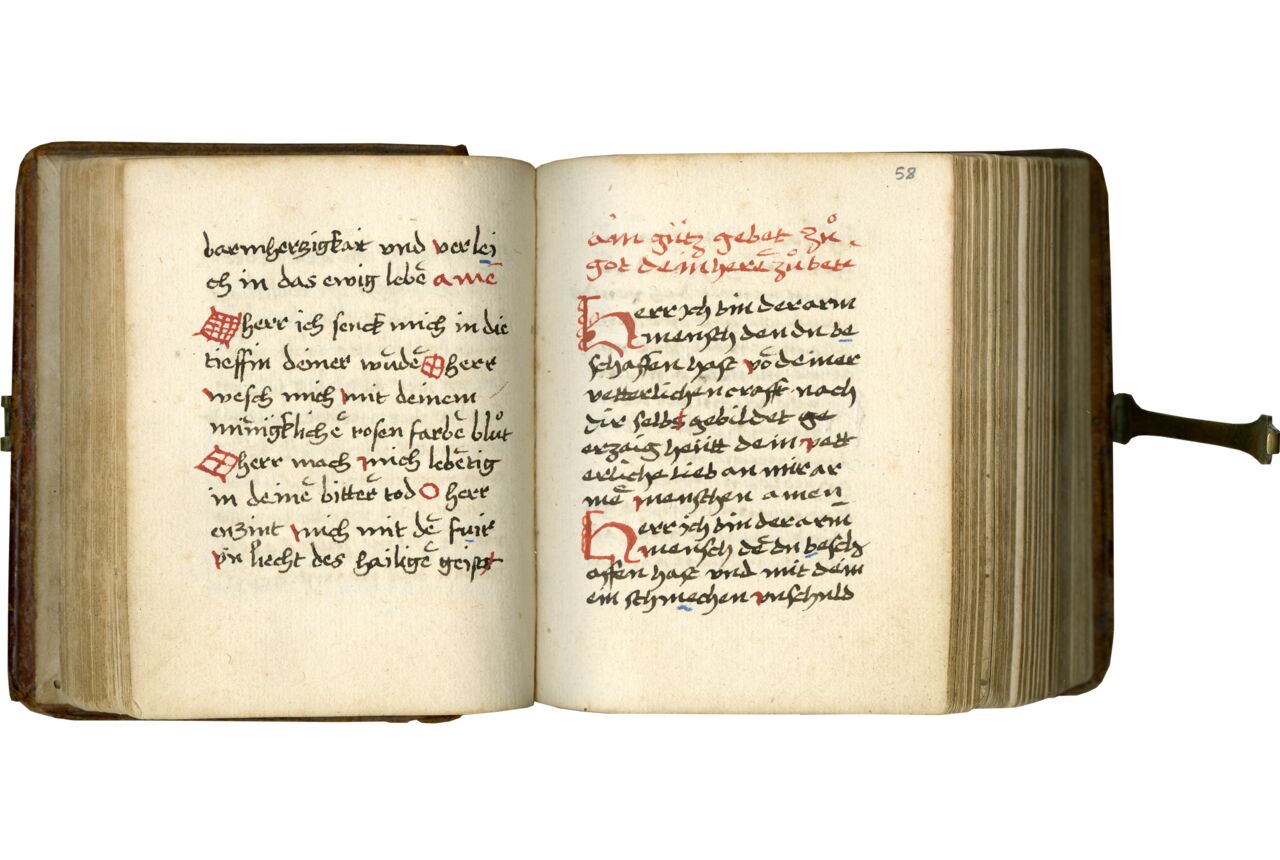 barmherzigkait vnd verlei
ch in das ewig lebē amē
O herr ich senck mich in die
tieffin deiner wūdē O herr
wesch mich mit deinem
miñigklichē rosen farbē blůt
O herr mach mich lebētig
in deinē bitterē tod O herr
enzint mich mit dē fuir
vñ liecht des hailigē geist
58
ain gůtz gebet zů
got dem herē zů bete
Herr ich bin der arm
mensch den du be
schaffen hast vō deiner
vetterlichen crafft nach
dir selbs gebildet ge
erzaig heütt dein vatt
erliche lieb an mir ar
mē menschen amen
Herr ich bin der arm
mensch dē du besch
affen hast vnd mit dein
em schmechen vnschuld